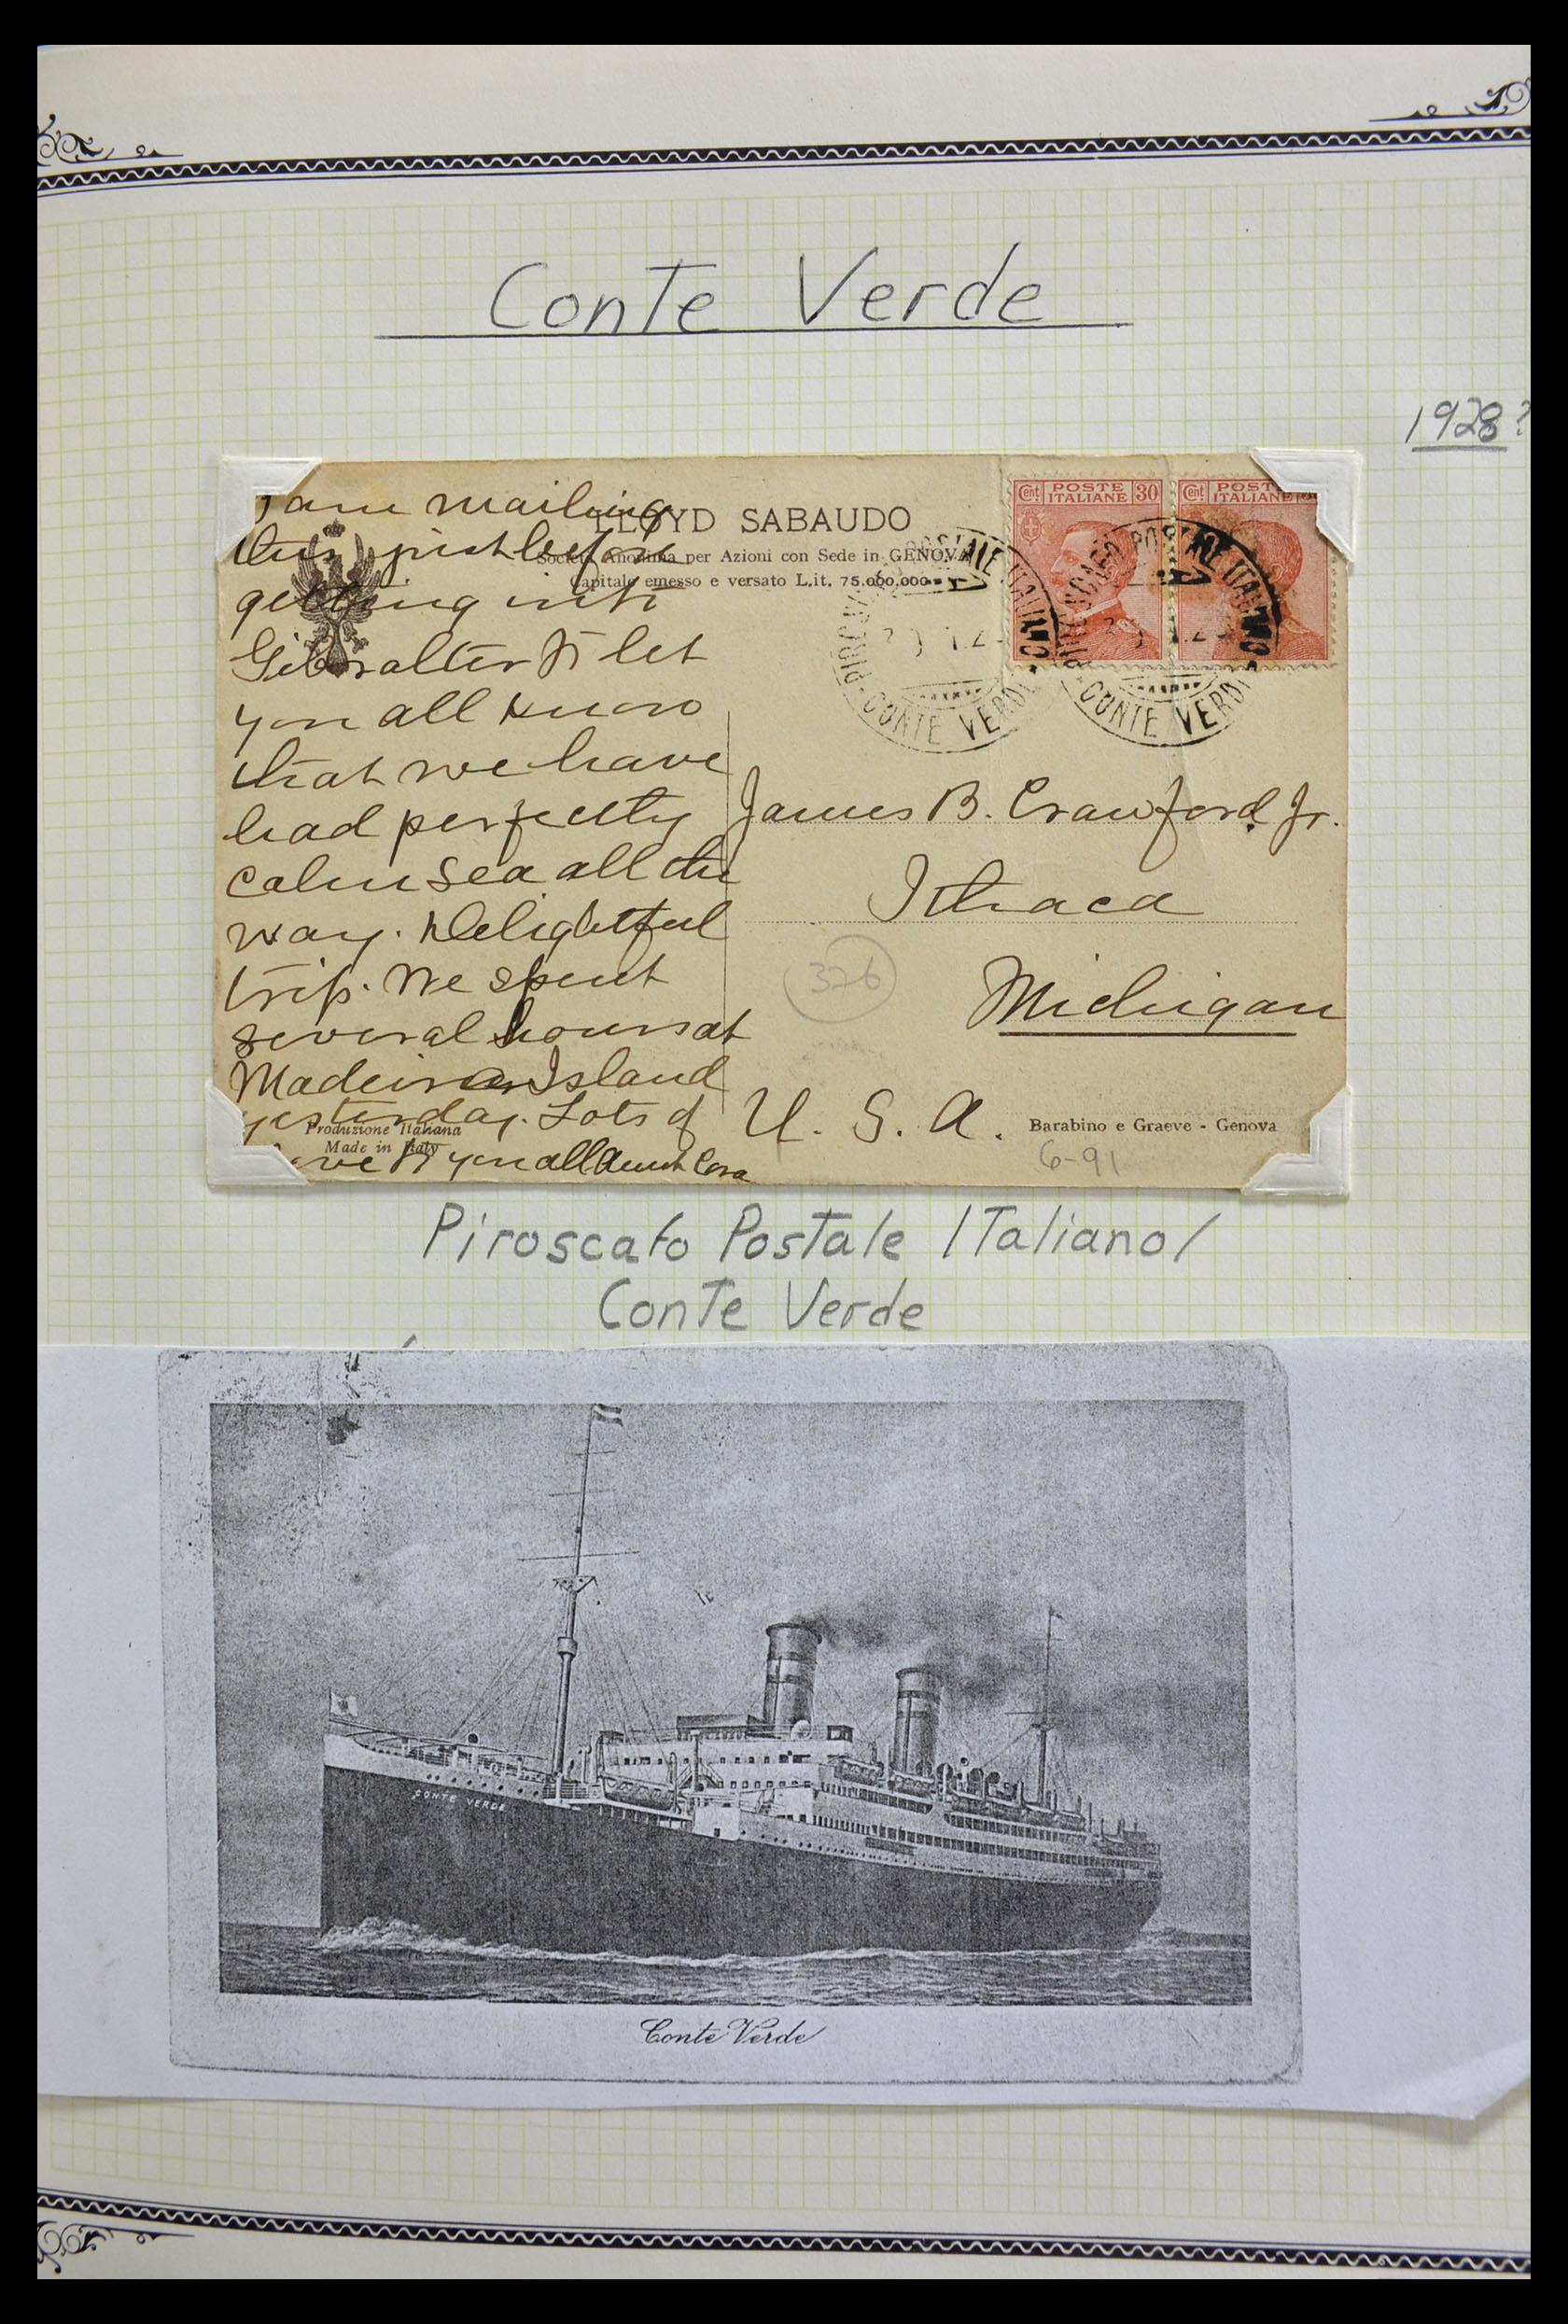 Conte Verde
1928?
I am mailing
this just before
getting into
Gibralter to let
you all know
that we have
had perfectly
calm sea all the
way. Delightful
trip. We spent
several hours at
Madeira Island
yesterday. Lots of
love to you all Aunt Cora
LLOYD SABAUDO
Società Anonima per Azioni con Sede in GENOVA
Capitale emesso e versato L.it. 75.000.000
Cent POSTE ITALIANE 30
Cent POSTE ITALIANE
PIROSCAFO POSTALE ITALIANO
CONTE VERDE
PIROSCAFO POSTALE ITALIANO
CONTE VERDE
James B. Crawford, Jr.
Ithaca
326
Michigan
U. S. A.
Produzione Italiana
Made in Italy
Barabino e Graeve - Genova
6-91
Piroscafo Postale Italiano/
Conte Verde
CONTE VERDE
Conte Verde